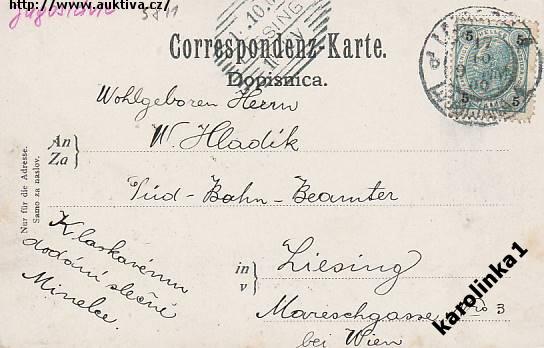 http://www.auktiva.cz/
Jugoslavie 3811
LIESING
Correspondenz-Karte.
Dopisnica.
5 5
5 5
Wohlgeboren Herrn
An
Za
W. Hladík
Süd-Bahn-Beamter
Nur für die Adresse.
Samo za naslov.
K laskavému
dodání slečně
Minelce.
in
v
Liesing
Mareschgasse No 3
bei Wien
karolinka1